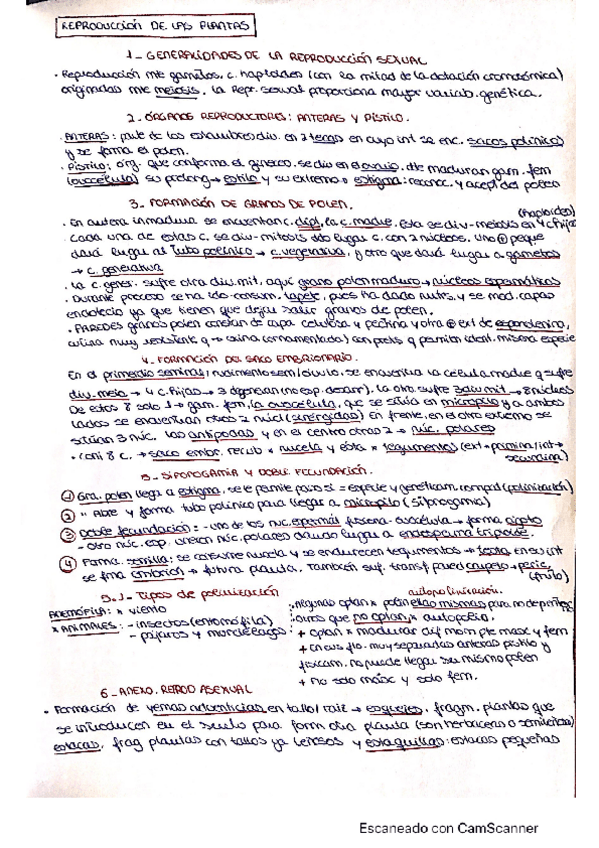 REPRODUCCIÓN DE LAS PLANTAS
1- GENERALIDADES DE LA REPRODUCCIÓN SEXUAL
· Reproducción mte gametos, c. haploides (con la mitad de la dotación cromosómica)
originadas mte meiosis. La repr. sexual proporciona mayor variab. genética.
2- ÓRGANOS REPRODUCTORES: ANTERAS Y PISTILO.
· ANTERAS: parte de los estambres div. en 2 tecas en cuyo int se enc. sacos polínicos)
y se forma el polen.
· PISTILO: órg. que conforma el gineceo, se div en el ovario. dte maduran gam. fem
(ovocélula) su prolong → estilo y su extremo → estigma: reconoc. y acept del polen
3- FORMACIÓN DE GRANOS DE POLEN.
(haploides)
· En antera inmadura se encuentran c. dipl, la c. madre. Esta se div-meiosis en 4 c hijas
· Cada una de estas c. se div-mitosis ddo lugar c. con 2 núcleos. Uno peque
dará lugar al tubo polínico → c. vegetativa, y otro que dará lugar a gametos
→ c. generativa
· La c. gener. sufre otra div. mit, aquí grano polen maduro → núcleos espermáticos
· Durante proceso se ha ido consum. tapete, pues ha dado nutrs. y se mod. capas
endotecio ya que tienen que dejar salir granos de polen.
· PAREDES granos polen constan de capa celulosa y pectina y otra ext de esporolenina,
muy resistente (ornamentada) con q permiten ident. misma especie
4- FORMACIÓN DEL SACO EMBRIONARIO.
En el primordio seminal, rudimento sem / óvulo, se encuentra la célula madre q sufre
div. meio → 4 c. hijas → 3 degeneran (no esp. desarr). La otra sufre 3 div mit → 8 núcleos
De estos 8 solo 1 → gam. fem, la ovocélula, que se sitúa en micropilo y a ambos
lados se encuentran otros 2 nucl (sinérgidas) En frente, en el otro extremo se
sitúan 3 núc. las antípodas y en el centro otras 2 → núc. polares
· con 8 c. → saco embr. recub x nucela y esta x tegumentos (ext → primina / int →
secundina)
5- SIFONOGAMIA Y DOBLE FECUNDACIÓN.
① Gra. polen llega a estigma, se le permite paso si = especie y genéticam. compat (polinización)
② " Abre y forma tubo polínico para llegar a micropilo (sifonogamia)
③ Doble fecundación: - uno de los nuc. espermát fusiona - ovocélula → forma cigoto
- otro núc. esp. unen núc. polares dando lugar a endosperma triploide.
④ Forma. semilla: se consume nucela y se endurecen tegumentos → testa en su int
se fma embrión → futura planta. También suf. transf. pared carpelo → peric.
(fruto)
5.1- Tipos de polinización
autopolinización.
ANEMÓFILA: x viento
x ANIMALES: - insectos (entomófila)
- pájaros y murciélagos
· Algunas optan x polin ellas mismas para no depender
· otros que no optan x autopolin.
+ optan x madurar dif mom pte masc y fem
+ en sus flo. muy separadas anteras pistilo y
físicam. no puede llegar su mismo polen
+ no solo masc y solo fem.
6- ANEXO. REPROD ASEXUAL
· Formación de yemas adventicias en tallo / raíz → esquejes, fragm. plantas que
se introducen en el suelo para form otra planta (son herbáceas o semileñosas)
estacas, frag plantas con tallos ya leñosos y estaquillas: estacas pequeñas
Escaneado con CamScanner